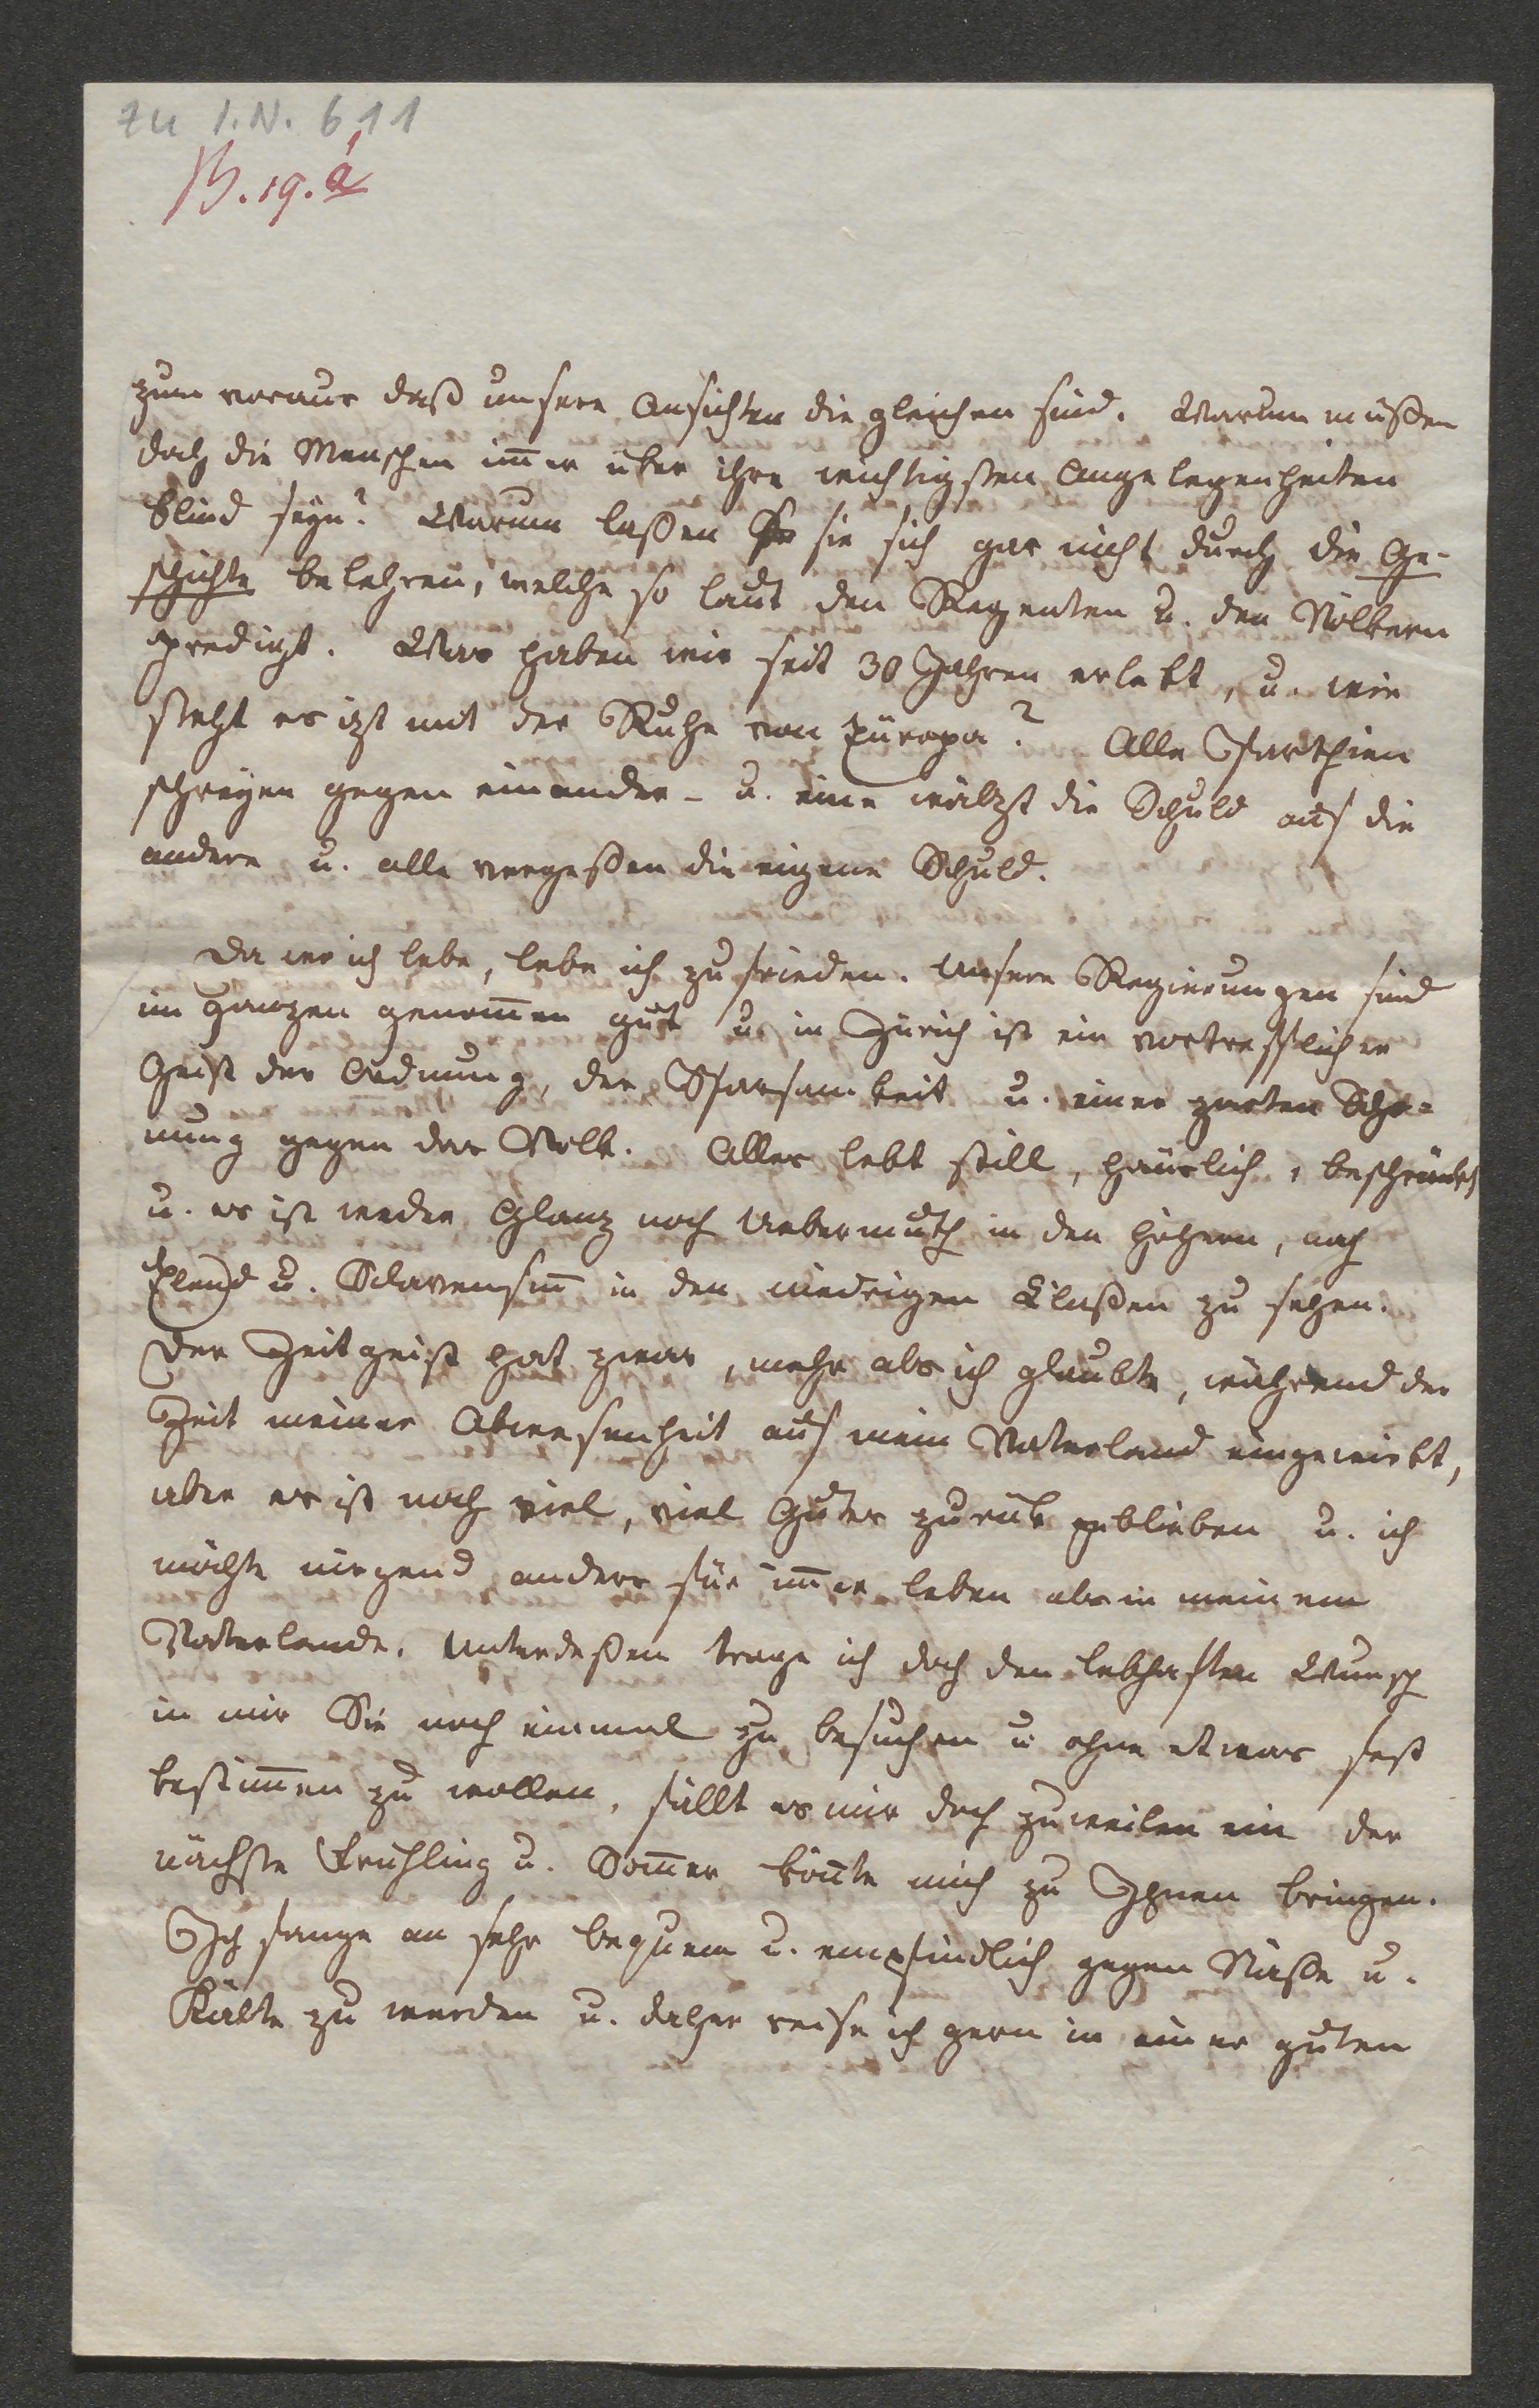 zu I.N. 611
B. 19. a
zum voraus daß unsere Ansichten die gleichen sind. Warum müßen
doch die Menschen im̅er über ihre wichtigsten Angelegenheiten
blind seyn? Warum laßen sie sich gar nicht durch die Ge-
schichte belehren, welche so laut den Regenten u. den Völkern
predigt. Was haben wir seit 30 Jahren erlebt, u. wie
steht es izt mit der Ruhe von Europa? Alle Parthien
schreyen gegen einander – u. eine wälzt die Schuld auf die
andere u. alle vergeßen die eigene Schuld.
Da wo ich lebe, lebe ich zufrieden. Unsere Regierungen sind
im ganzen genom̅en gut u. in Zürich ist ein vortrefflicher
Geist der Ordnung, der Sparsamkeit u. einer zarten Scho-
nung gegen das Volk. Alles lebt still, häuslich, beschränkt
u. es ist weder Glanz noch Uebermuth in den höhern, noch
Elend u. Sclavensin̅ in den niedrigen Claßen zu sehen.
Der Zeitgeist hat zwar, mehr als ich glaubte, während der
Zeit meiner Abwesenheit auf mein Vaterland eingewirkt,
aber es ist noch viel, viel Gutes zurük geblieben u. ich
möchte nirgend anders für im̅er leben als in meinem
Vaterlande. Unterdeßen trage ich doch den lebhaften Wunsch
in mir Sie noch einmal zu besuchen u. ohne etwas fest
bestim̅en zu wollen, fällt es mir doch zuweilen ein der
nächste Frühling u. Som̅er kön̅te mich zu Ihnen bringen.
Ich fange an sehr bequem u. empfindlich gegen Näße u.
Kälte zu werden u. daher reise ich gern in einer guten